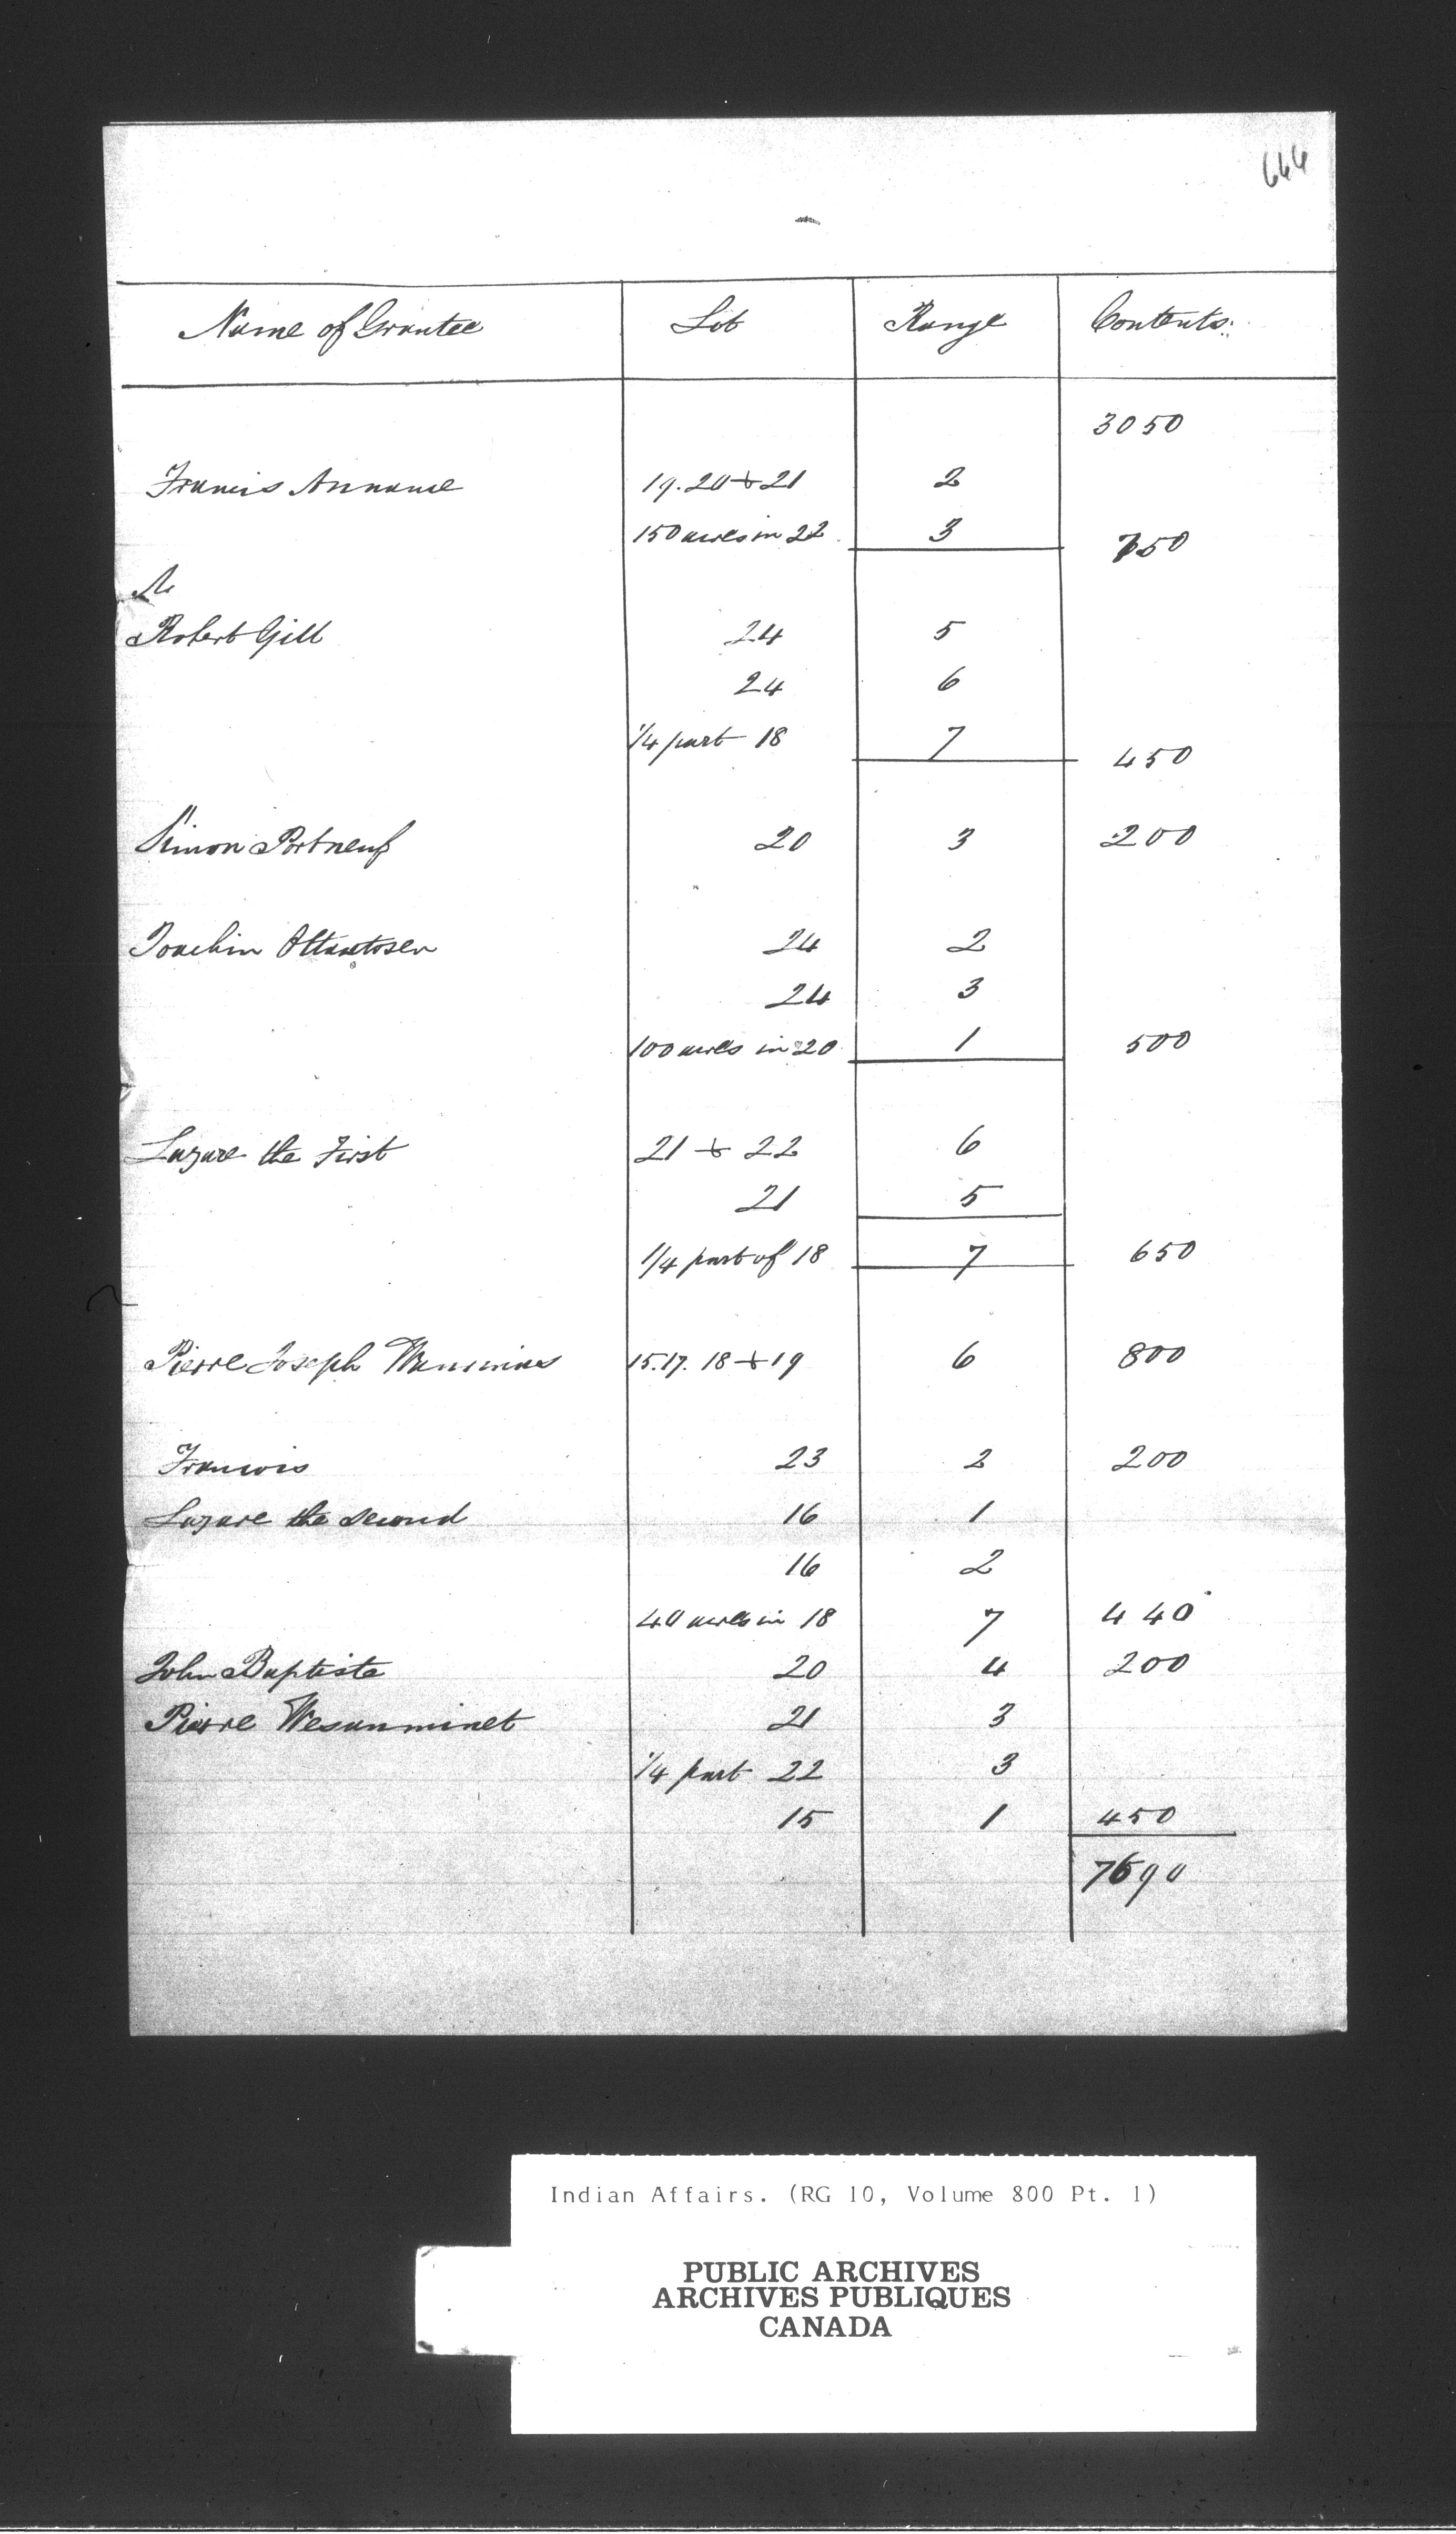 666
Name of Grantee Lot Range Contents
3050
Francis Annance 19. 20 + 21 2
150 acres in 22 3 750
Robert Gill 24 5
24 6
1/4 part 18 7 450
Simon Portneuf 20 3 200
Joachin Ottantosen 24 2
24 3
100 acres in 20 1 500
Lazare the First 21 + 22 6
21 5
1/4 part of 18 7 650
Pierre Joseph 15. 17. 18 + 19 6 800
Francois 23 2 200
Lazare the second 16 1
16 2
40 acres in 18 7 440
John Baptiste 20 4 200
Pierre Wesanminet 21 3
1/4 part 22 3
15 1 450
7690
Indian Affairs. (RG 10, Volume 800 Pt. 1)
PUBLIC ARCHIVES
ARCHIVES PUBLIQUES
CANADA